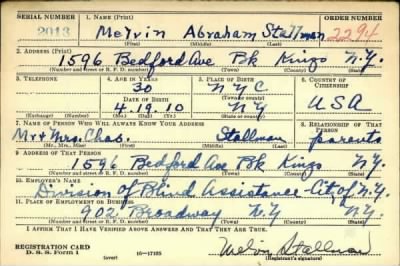 SERIAL NUMBER 1. NAME (Print) ORDER NUMBER
2013 Melvin Abraham Stallman 2294
(First) (Middle) (Last)
2. ADDRESS (Print)
1596 Bedford Ave Bk Kings N.Y.
(Number and street or R. F. D. number) (Town) (County) (State)
3. TELEPHONE 4. AGE IN YEARS 5. PLACE OF BIRTH 6. COUNTRY OF CITIZENSHIP
30 NYC
DATE OF BIRTH (Town or county) USA
4.19.10 NY
(Exchange) (Number) (Mo.) (Day) (Yr.) (State or country)
7. NAME OF PERSON WHO WILL ALWAYS KNOW YOUR ADDRESS 8. RELATIONSHIP OF THAT PERSON
Mr & Mrs. Chas. Stallman parents
(Mr., Mrs., Miss) (First) (Middle) (Last)
9. ADDRESS OF THAT PERSON
1596 Bedford Ave Bk Kings N.Y.
(Number and street or R. F. D. number) (Town) (County) (State)
10. EMPLOYER'S NAME
Division of Blind Assistance - City of N.Y.
11. PLACE OF EMPLOYMENT OR BUSINESS
902 Broadway N.Y N.Y.
(Number and street or R. F. D. number) (Town) (County) (State)
I AFFIRM THAT I HAVE VERIFIED ABOVE ANSWERS AND THAT THEY ARE TRUE.
REGISTRATION CARD
D. S. S. Form 1 (over) 16—17105 Melvin Stallman
(Registrant's signature)